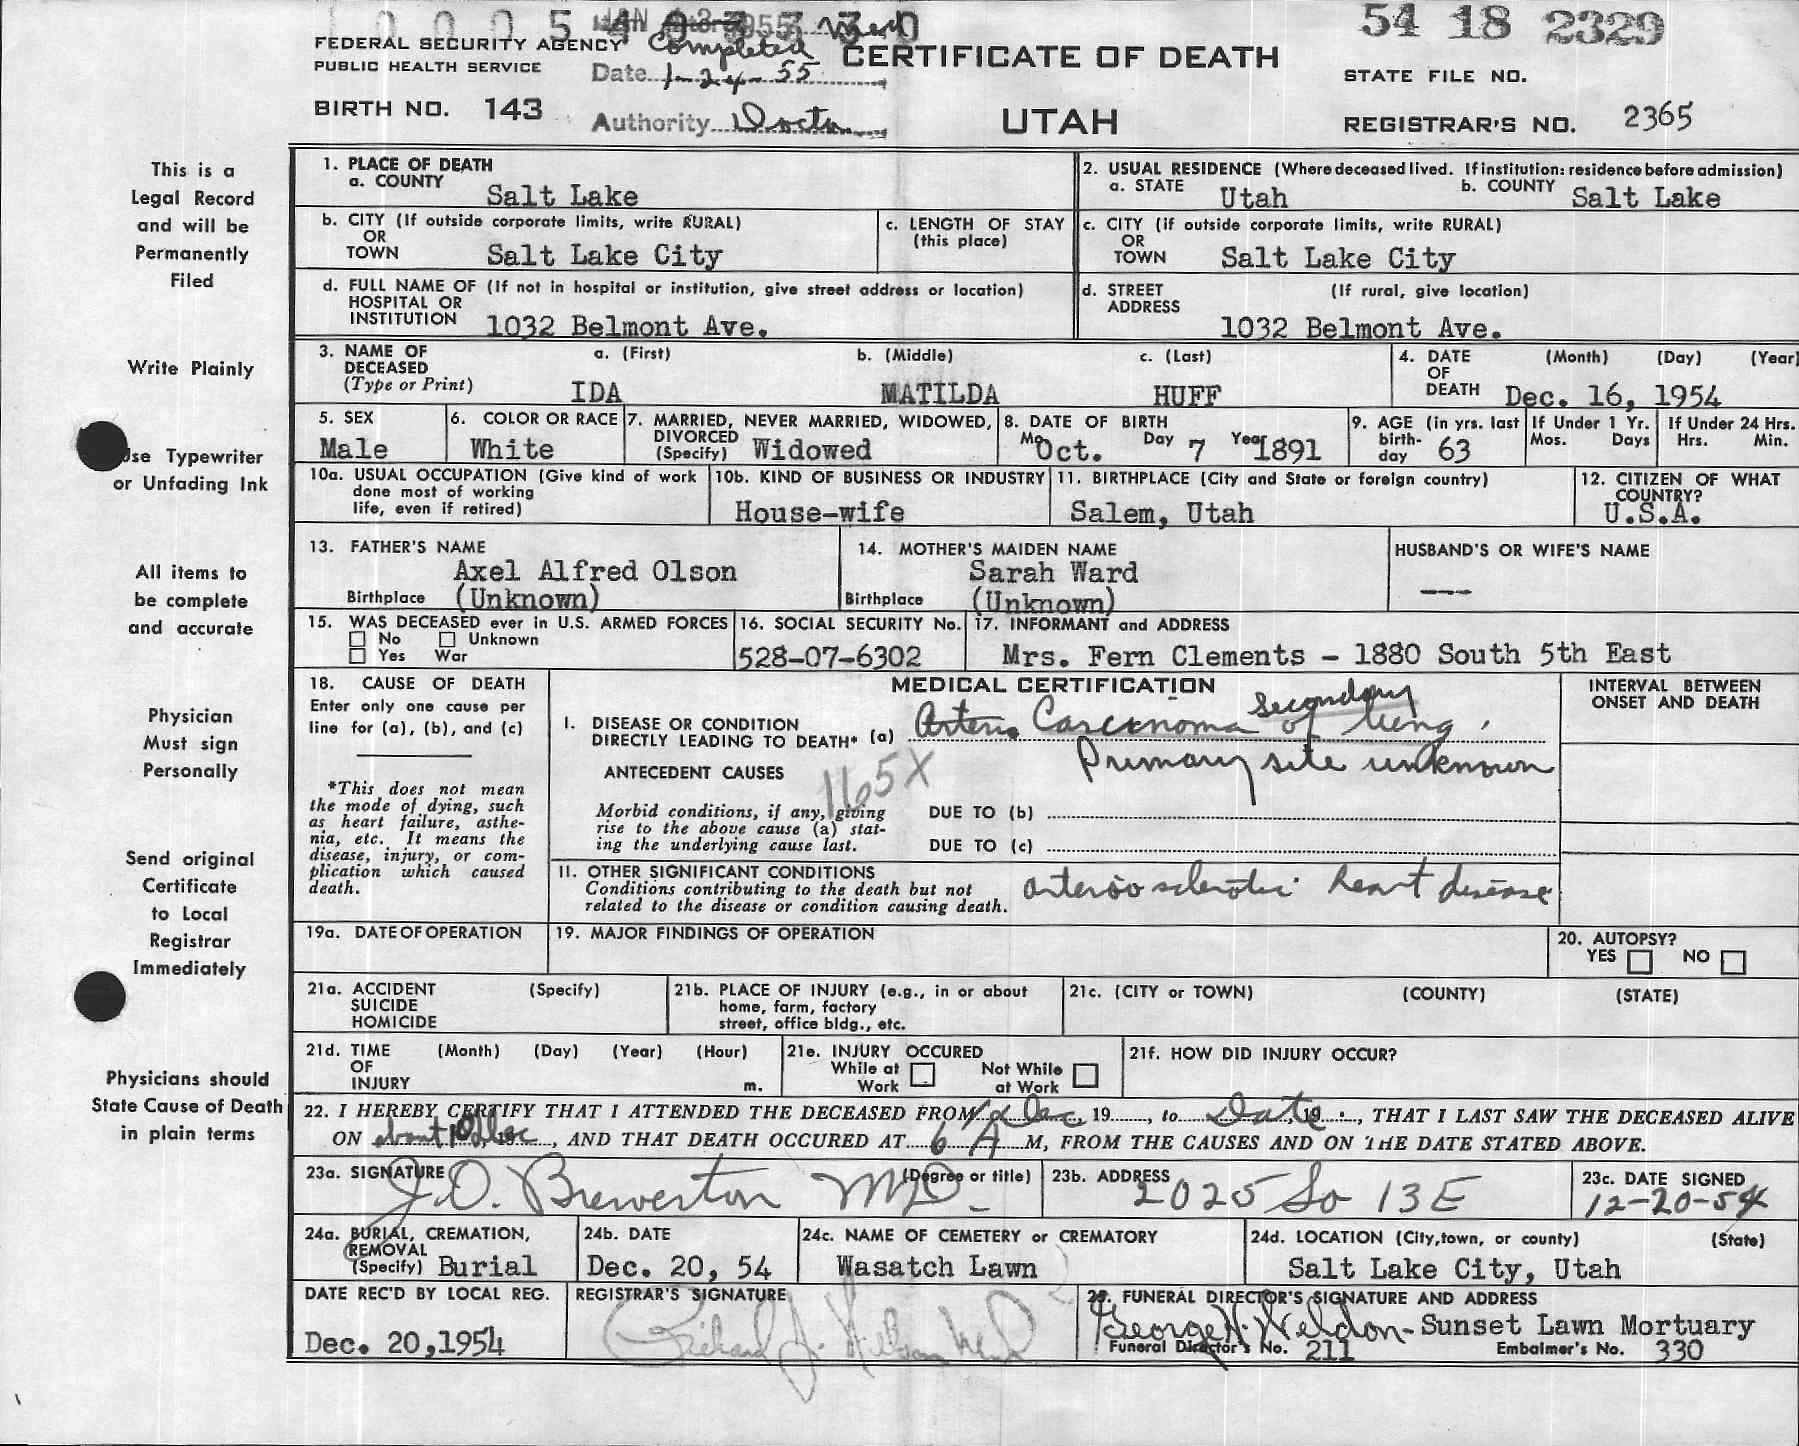 54 18 2329
FEDERAL SECURITY AGENCY Completed CERTIFICATE OF DEATH
PUBLIC HEALTH SERVICE Date 1-24-55 STATE FILE NO.
BIRTH NO. 143 Authority Doctor UTAH REGISTRAR'S NO. 2365
This is a
Legal Record
and will be
Permanently
Filed
Write Plainly
Use Typewriter
or Unfading Ink
All items to
be complete
and accurate
Physician
Must sign
Personally
Send original
Certificate
to Local
Registrar
Immediately
Physicians should
State Cause of Death
in plain terms
1. PLACE OF DEATH
a. COUNTY Salt Lake
2. USUAL RESIDENCE (Where deceased lived. If institution: residence before admission)
a. STATE Utah b. COUNTY Salt Lake
b. CITY (If outside corporate limits, write RURAL)
OR
TOWN Salt Lake City
c. LENGTH OF STAY
(this place)
c. CITY (if outside corporate limits, write RURAL)
OR
TOWN Salt Lake City
d. FULL NAME OF (If not in hospital or institution, give street address or location)
HOSPITAL OR
INSTITUTION 1032 Belmont Ave.
d. STREET (If rural, give location)
ADDRESS 1032 Belmont Ave.
3. NAME OF a. (First) b. (Middle) c. (Last)
DECEASED
(Type or Print) IDA MATILDA HUFF
4. DATE (Month) (Day) (Year)
OF
DEATH Dec. 16, 1954
5. SEX
Male
6. COLOR OR RACE
White
7. MARRIED, NEVER MARRIED, WIDOWED,
DIVORCED
(Specify) Widowed
8. DATE OF BIRTH
Mo Oct. Day 7 Year 1891
9. AGE (in yrs. last
birth-
day 63
If Under 1 Yr.
Mos. Days
If Under 24 Hrs.
Hrs. Min.
10a. USUAL OCCUPATION (Give kind of work
done most of working
life, even if retired)
10b. KIND OF BUSINESS OR INDUSTRY
House-wife
11. BIRTHPLACE (City and State or foreign country)
Salem, Utah
12. CITIZEN OF WHAT
COUNTRY?
U.S.A.
13. FATHER'S NAME
Axel Alfred Olson
Birthplace (Unknown)
14. MOTHER'S MAIDEN NAME
Sarah Ward
Birthplace (Unknown)
HUSBAND'S OR WIFE'S NAME
---
15. WAS DECEASED ever in U.S. ARMED FORCES
No Unknown
Yes War
16. SOCIAL SECURITY No.
528-07-6302
17. INFORMANT and ADDRESS
Mrs. Fern Clements - 1880 South 5th East
18. CAUSE OF DEATH
Enter only one cause per
line for (a), (b), and (c)
*This does not mean
the mode of dying, such
as heart failure, asthe-
nia, etc. It means the
disease, injury, or com-
plication which caused
death.
MEDICAL CERTIFICATION
secondary
I. DISEASE OR CONDITION
DIRECTLY LEADING TO DEATH* (a) Arterio Carcenoma of lung,
Primary site unknown
ANTECEDENT CAUSES 165X
Morbid conditions, if any, giving DUE TO (b)
rise to the above cause (a) stat-
ing the underlying cause last. DUE TO (c)
11. OTHER SIGNIFICANT CONDITIONS
Conditions contributing to the death but not
related to the disease or condition causing death.
arteriosclerotic heart disease
INTERVAL BETWEEN
ONSET AND DEATH
19a. DATE OF OPERATION
19. MAJOR FINDINGS OF OPERATION
20. AUTOPSY?
YES NO
21a. ACCIDENT (Specify)
SUICIDE
HOMICIDE
21b. PLACE OF INJURY (e.g., in or about
home, farm, factory
street, office bldg., etc.
21c. (CITY or TOWN) (COUNTY) (STATE)
21d. TIME (Month) (Day) (Year) (Hour)
OF
INJURY m.
21e. INJURY OCCURED
While at Not While
Work at Work
21f. HOW DID INJURY OCCUR?
22. I HEREBY CERTIFY THAT I ATTENDED THE DECEASED FROM Dec, 19, to Date, 19, THAT I LAST SAW THE DECEASED ALIVE
ON about 10 Dec, AND THAT DEATH OCCURED AT 6 A M, FROM THE CAUSES AND ON THE DATE STATED ABOVE.
23a. SIGNATURE (Degree or title)
J.O. Brewerton MD.
23b. ADDRESS
2025 So 13E
23c. DATE SIGNED
12-20-54
24a. BURIAL, CREMATION,
REMOVAL
(Specify) Burial
24b. DATE
Dec. 20, 54
24c. NAME OF CEMETERY or CREMATORY
Wasatch Lawn
24d. LOCATION (City, town, or county) (State)
Salt Lake City, Utah
DATE REC'D BY LOCAL REG.
Dec. 20,1954
REGISTRAR'S SIGNATURE
25. FUNERAL DIRECTOR'S SIGNATURE AND ADDRESS
George H. Weldon - Sunset Lawn Mortuary
Funeral Director's No. 211 Embalmer's No. 330